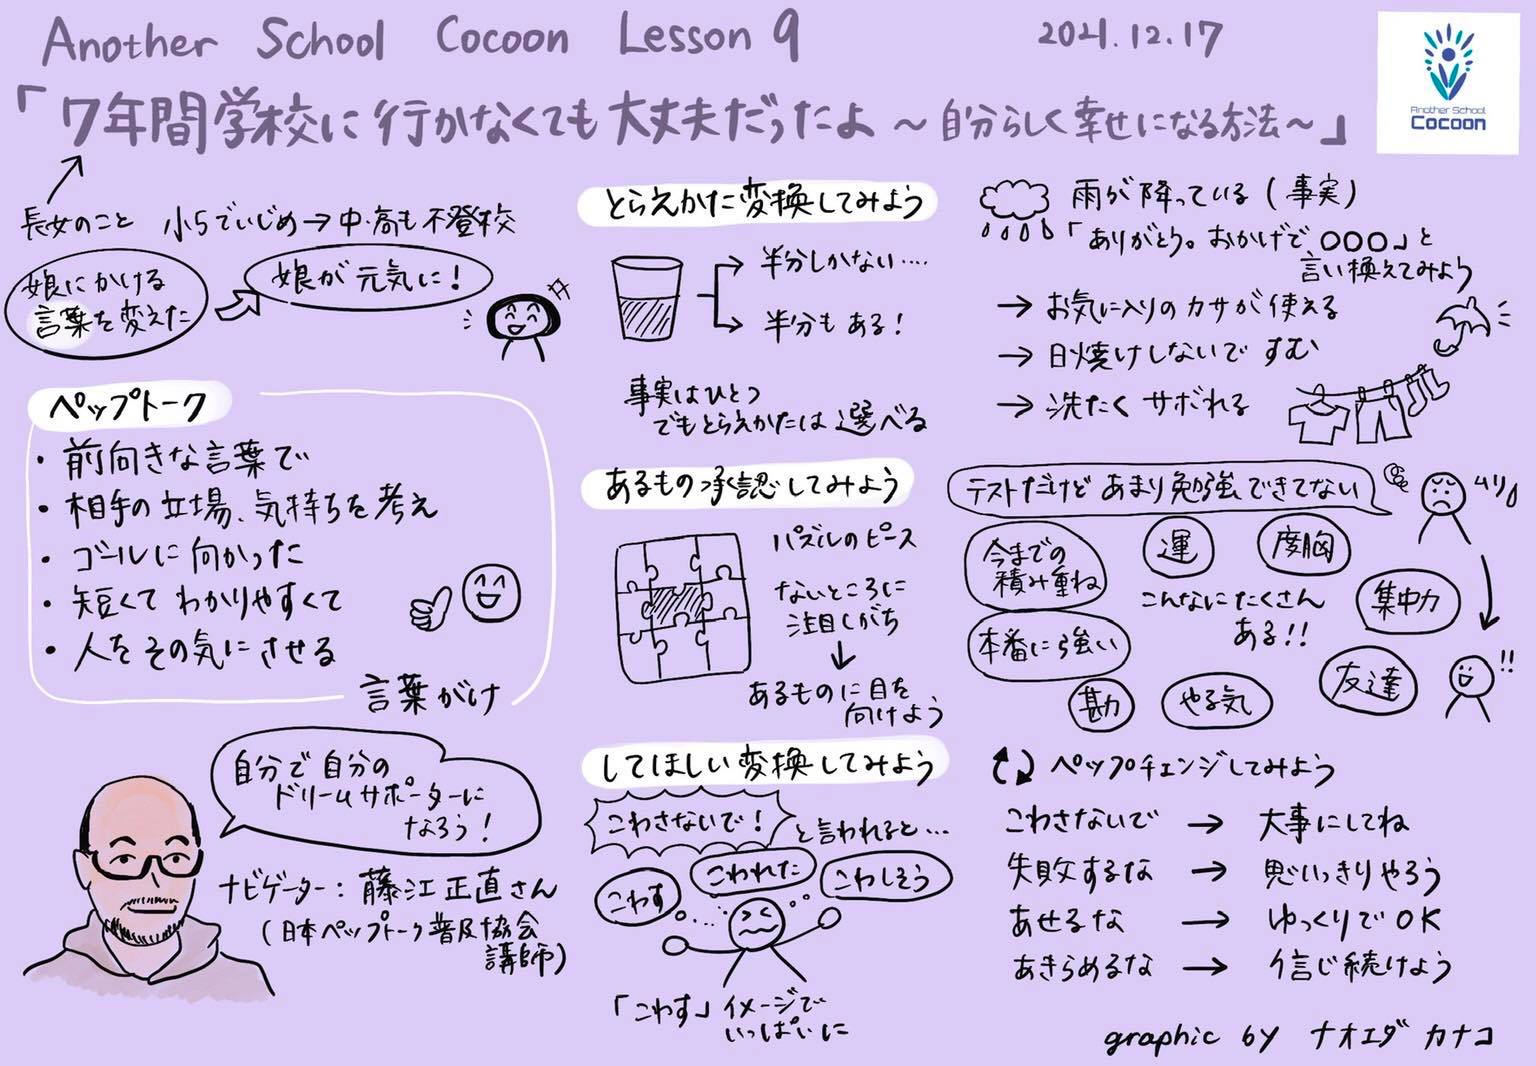 Another School Cocoon Lesson 9
2021.12.17
Another School
Cocoon
「7年間学校に行かなくても大丈夫だったよ ～自分らしく幸せになる方法～」
長女のこと 小5でいじめ→中・高も不登校
娘にかける
言葉を変えた
娘が元気に!
ペップトーク
・前向きな言葉で
・相手の立場、気持ちを考え
・ゴールに向かった
・短くてわかりやすくて
・人をその気にさせる
言葉がけ
自分で自分の
ドリームサポーターに
なろう!
ナビゲーター:藤江正直さん
(日本ペップトーク普及協会
講師)
とらえかた変換してみよう
半分しかない‥‥
半分もある!
事実はひとつ
でもとらえかたは選べる
あるもの承認してみよう
パズルのピース
ないところに
注目しがち
↓
あるものに目を
向けよう
してほしい変換してみよう
こわさないで!
と言われると…
こわす
こわれた
こわしそう
「こわす」イメージで
いっぱいに
雨が降っている(事実)
「ありがとう。おかげで、○○○」と
言い換えてみよう
→ お気に入りのカサが使える
→ 日焼けしないですむ
→ 洗たくサボれる
テストだけどあまり勉強できてない
ムリ
今までの
積み重ね
運
度胸
こんなにたくさん
ある!!
集中力
本番に強い
勘
やる気
友達
!!
ペップチェンジしてみよう
こわさないで → 大事にしてね
失敗するな → 思いっきりやろう
あせるな → ゆっくりでOK
あきらめるな → 信じ続けよう
graphic by ナオエダ カナコ